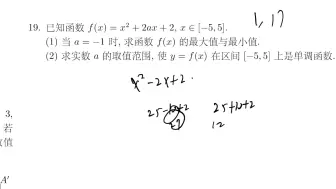 1, 17
19. 已知函数 f(x) = x² + 2ax + 2, x ∈ [-5, 5].
(1) 当 a = -1 时, 求函数 f(x) 的最大值与最小值.
(2) 求实数 a 的取值范围, 使 y = f(x) 在区间 [-5, 5] 上是单调函数.
x² - 2x + 2 .
25 25+10+2
17 12
3,
若
值
A'